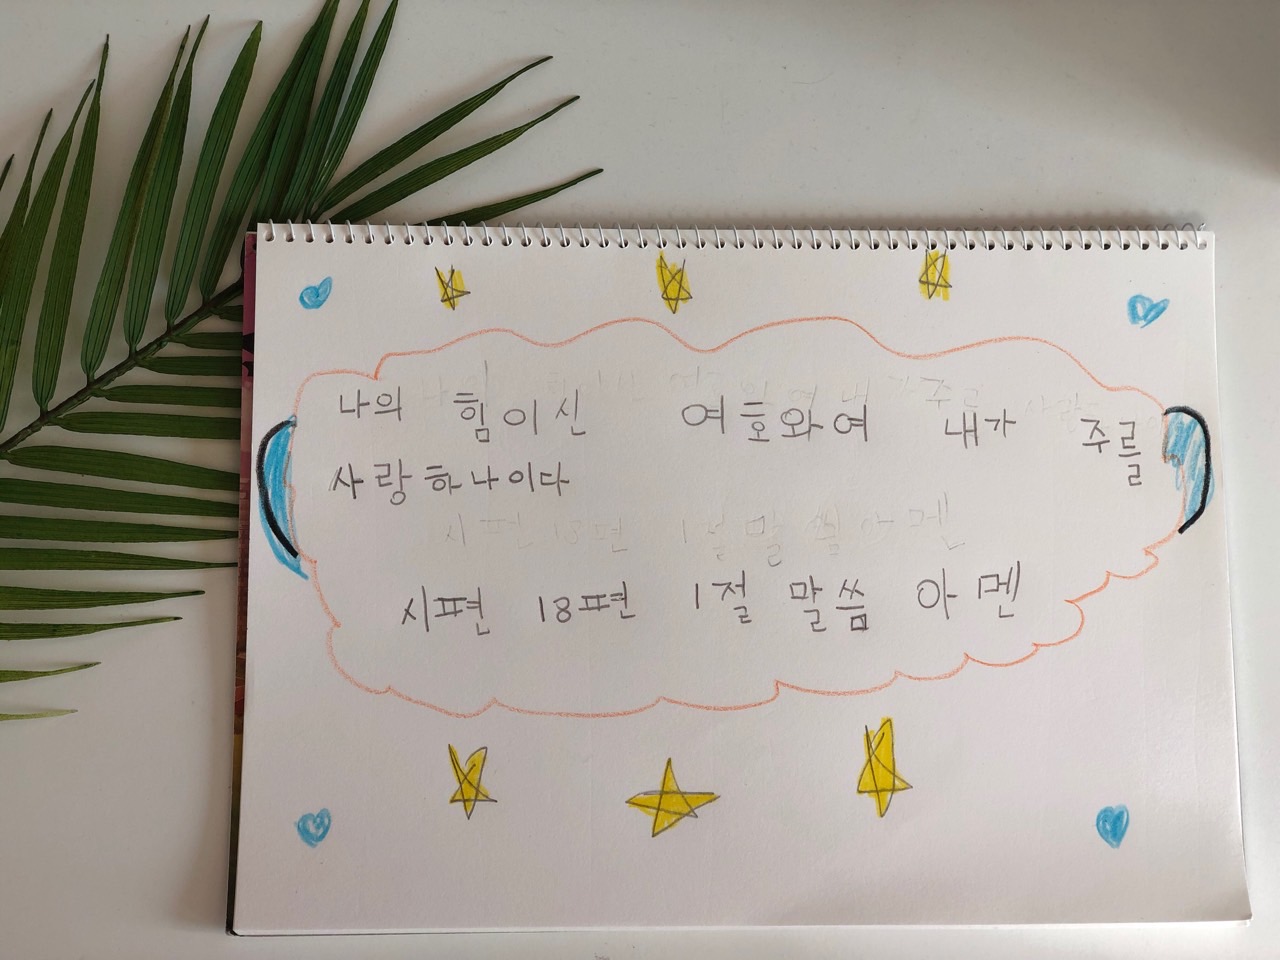 나의 힘이신 여호와여 내가 주를
사랑하나이다
시편 18편 1절 말씀 아멘